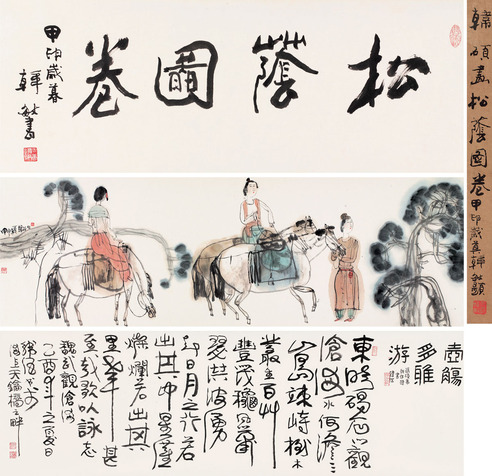 松蔭圖卷
甲申歲暮
韓敏書
韓碩畫松蔭圖卷甲申歲暮韓敏題
壺觴
多雅
游
東臨碣石以觀
滄海水何澹澹
山島竦峙樹木
叢生百草
豐茂秋風蕭
瑟洪波湧
起日月之行若
出其中星漢
燦爛若出其
里幸甚
至哉歌以詠志
魏武觀滄海
乙酉年之夏日